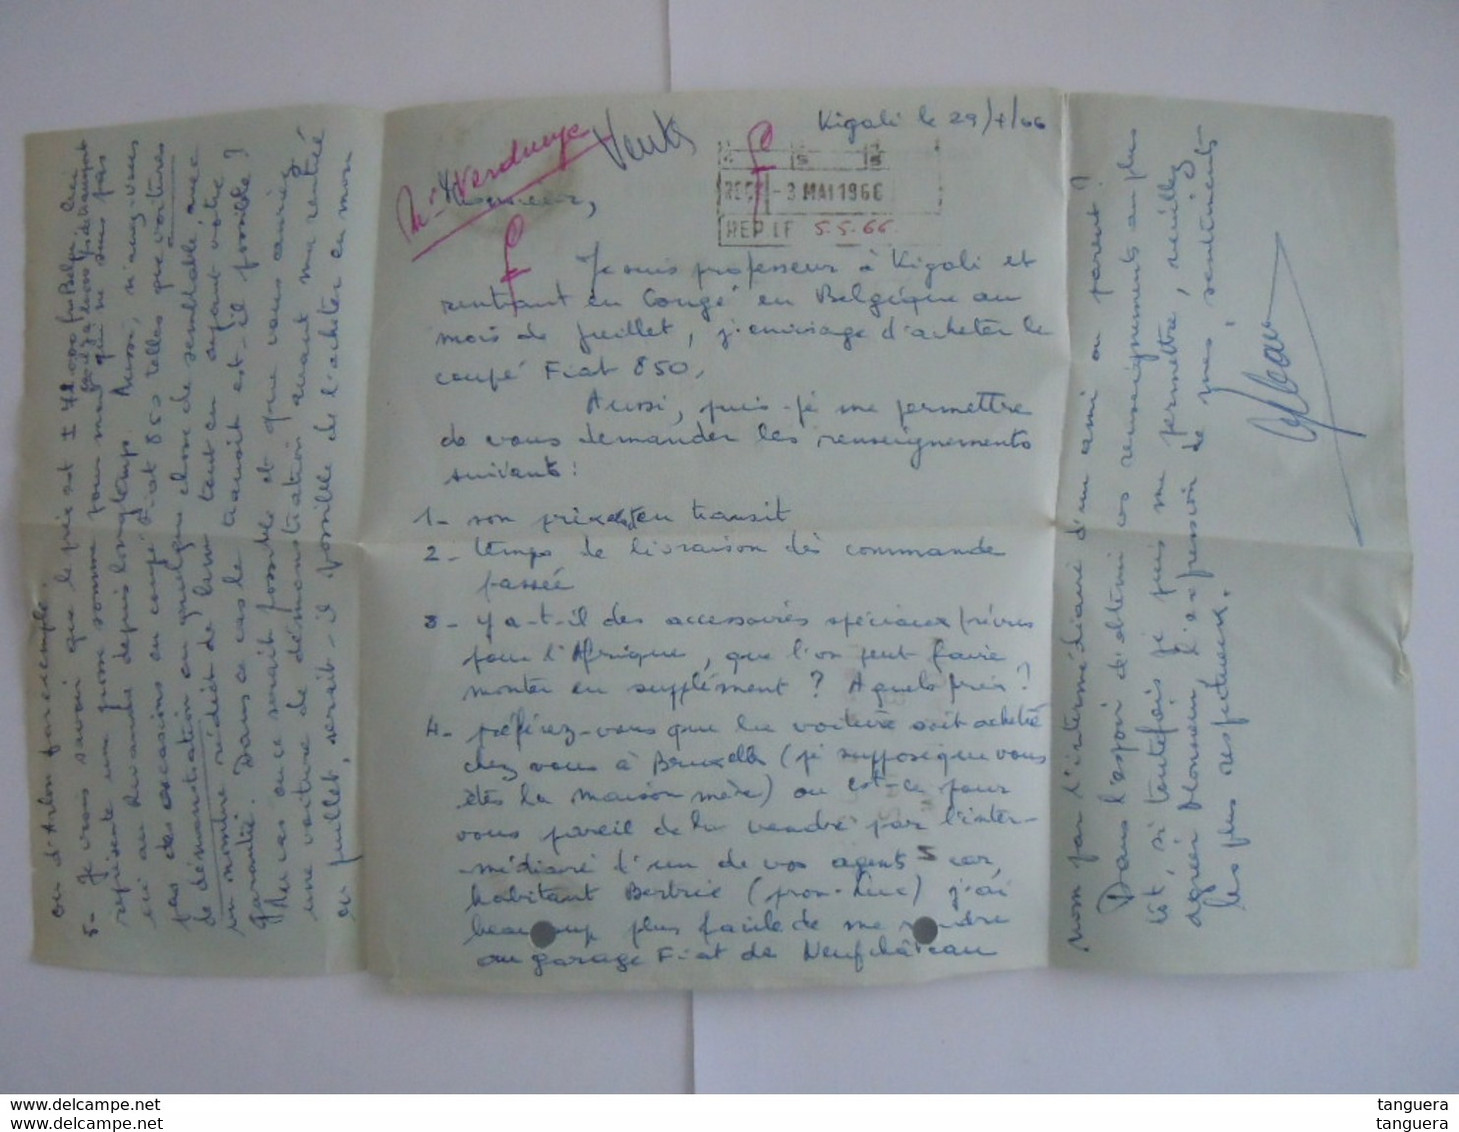 Kigali le 29/4/66
Mr Verdueye
Vente
Monsieur,
RECF - 3 MAI 1966
REP. LE 5.5.66
Je suis professeur à Kigali et
rentrant en Congé en Belgique au
mois de Juillet, j'envisage d'acheter le
coupé Fiat 850.
Aussi, puis-je me permettre
de vous demander les renseignements
suivants :
1- son prix en transit
2- temps de livraison dès commande
passée
3- y a-t-il des accessoires spéciaux prévus
pour l'Afrique, que l'on peut faire
monter en supplément ? A quels prix ?
4- préférez-vous que la voiture soit achetée
chez vous à Bruxelles (je suppose que vous
êtes la maison mère) ou est-ce pour
vous pareil de la vendre par l'inter-
médiaire d'un de vos agents car,
habitant Bertrix (prov. Lux) j'ai
beaucoup plus facile de me rendre
au garage Fiat de Neufchâteau
ou d'Arlon par exemple.
5- Je crois savoir que le prix est ± 72.000 fr Belges, ceci
représente une grosse somme pour moi qui ne suis pas
ici au Rwanda depuis longtemps. Aussi, n'avez-vous
pas des occasions en coupé Fiat 850 telles que voitures
de démonstration ou quelque chose de semblable, avec
un nombre réduit de kms tout en ayant votre
garantie. Dans ce cas le transit est-il possible ?
Au cas où ce serait possible et que vous auriez
une voiture de démonstration avant ma rentrée
en juillet, serait-il possible de l'acheter en mon
nom par l'intermédiaire d'un ami ou parent ?
Dans l'espoir d'obtenir ces renseignements au plus
tôt, si toutefois je puis me permettre, veuillez
agréer Monsieur, l'expression de mes sentiments
les plus respectueux.
tanguera
tanguera
www.delcampe.net
www.delcampe.net